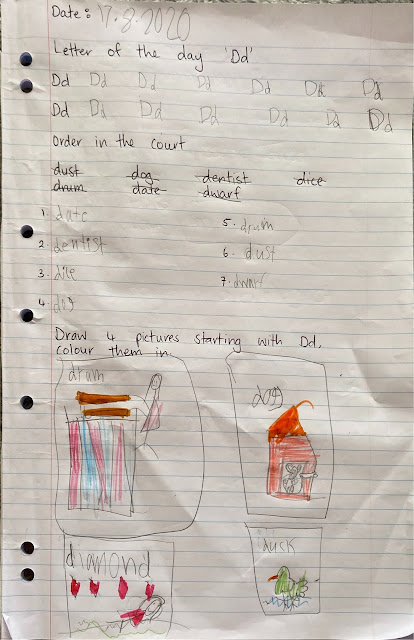 Date: 17.8.2020
Letter of the day 'Dd'
Dd Dd Dd Dd Dd Dd Dd
Dd Dd Dd Dd Dd Dd Dd
Order in the court
dust dog dentist dice
drum date dwarf
1. date 5. drum
2. dentist 6. dust
3. dice 7. dwarf
4. dog
Draw 4 pictures starting with Dd.
Colour them in.
drum dog
diamond duck